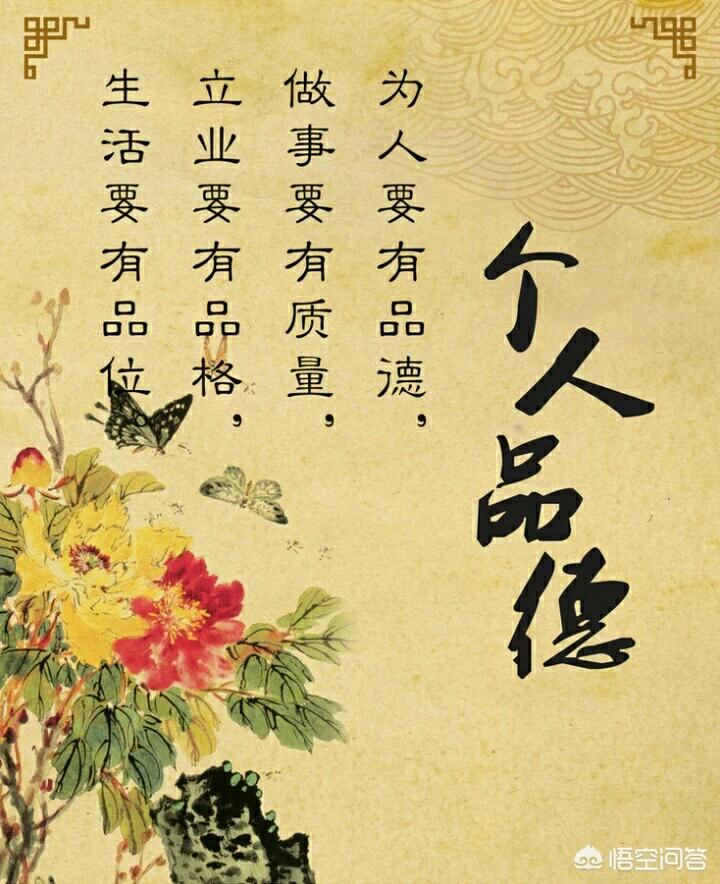 个人品德
为人要有品德，
做事要有质量，
立业要有品格，
生活要有品位。
悟空问答